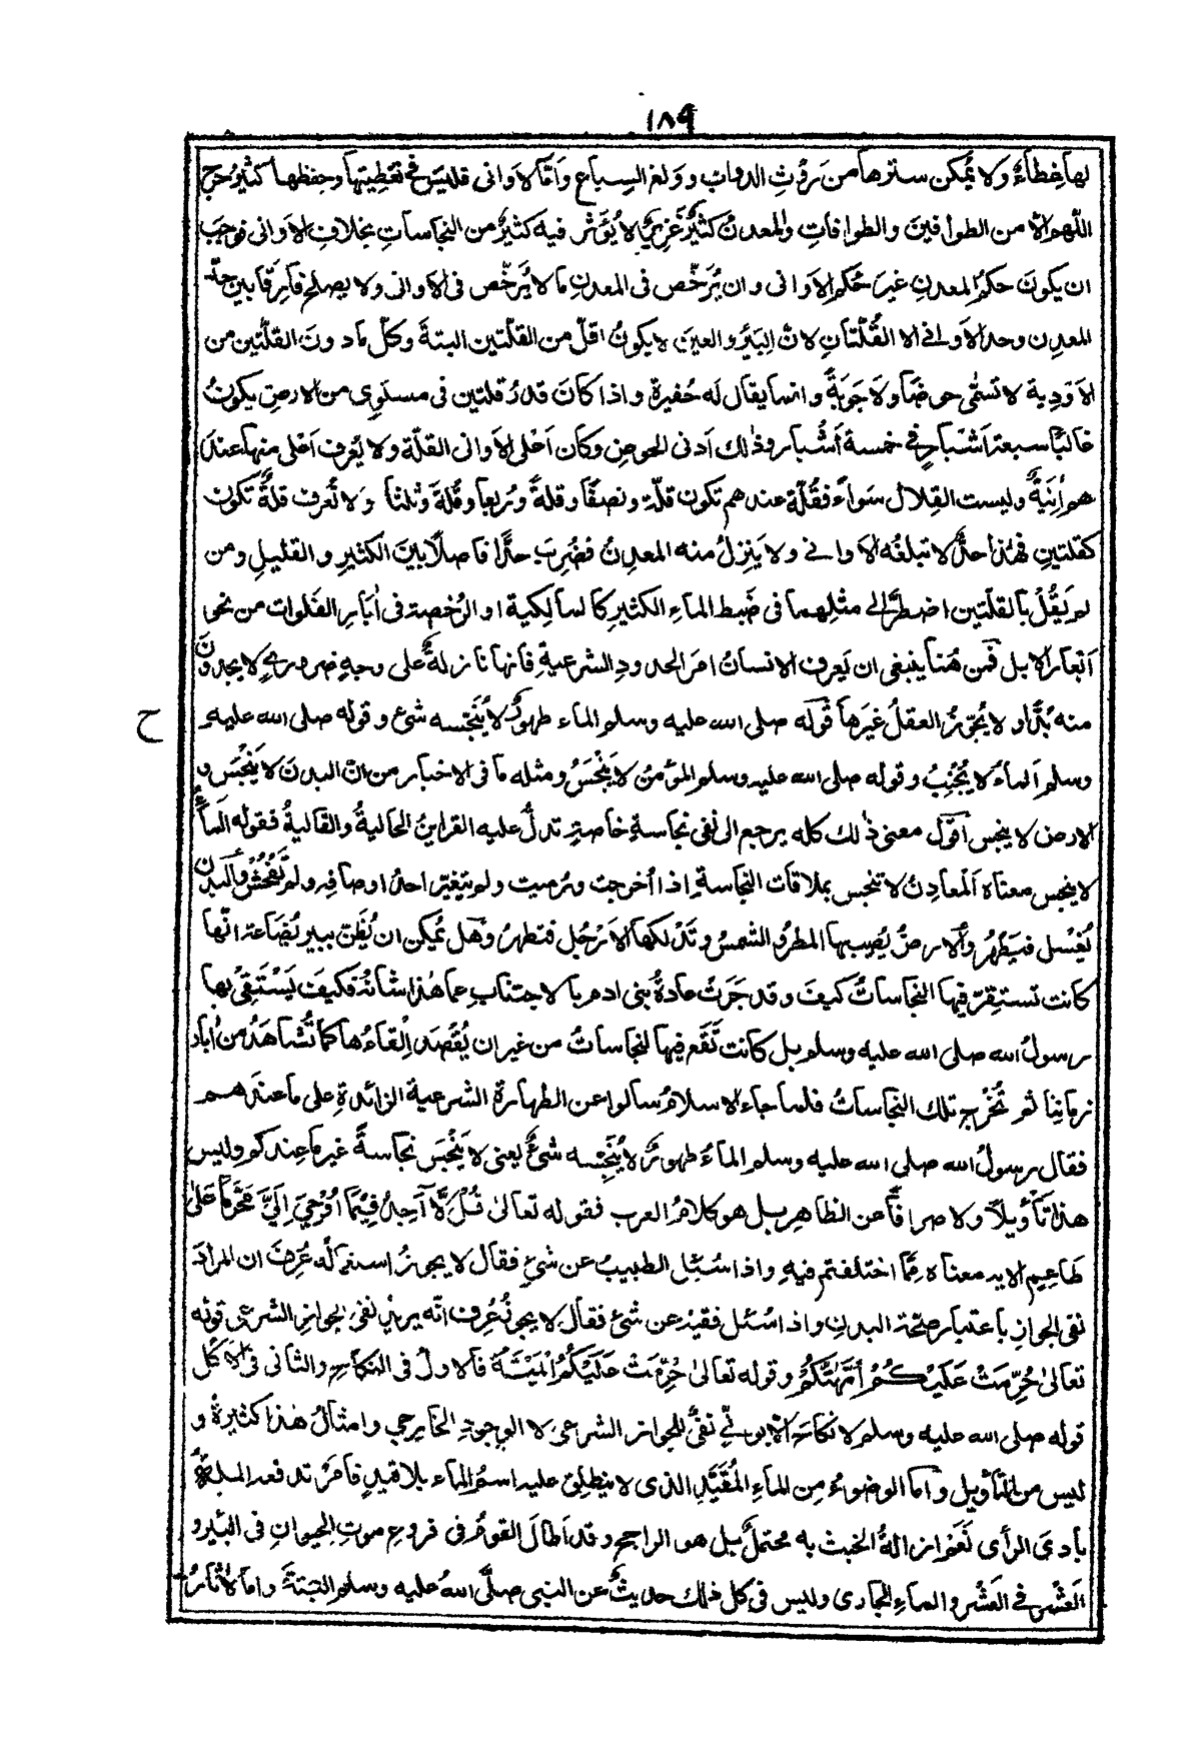 ١٨٩
لها غطاءٌ ولا يُمكن سترها من رَوْثِ الدواب ووَلغِ السباع وَامّا الاَوانى فليسَ فى تغطيتها وحفظها كثيرُ حرجٍ
اللّٰهم الا من الطوافينَ والطوافاتِ والمعدنُ كثيرٌ غزيرٌ لا يُؤثّر فيه كثيرٌ من النجاساتِ بخلافِ الاَوانى فوجب
ان يكونَ حكمُ المعدنِ غيرَ حُكم الاَوانى وان يُرَخّص فى المعدنِ ما لا يُرَخّص فى الاوانى ولا يصلح فارِقًا بين حدّ
المعدِن وحد الاَوانى الا القُلّتانِ لانّ البيرَ والعينَ لا يكونُ اقلّ من القلّتين البتةَ وكلّ ما دونَ القلّتين من
الاَوْدِية لا تسمّٰى حوضًا ولا جَوبَةً وانما يقال له حُفيرة واذا كانَ قدرُ قلتين فى مستوِى من الارضِ يكونُ
غالبًا سبعةَ اَشْبارٍ فى خمسة اَشْبار وذٰلك اَدنى الحوضِ وكان اَعْلى الاَوانى القلّة ولا يُعرف اَعْلى منها عندَ
هم اٰنيةٌ وليست القِلال سَواءً فقُلّة عندهم تكون قلّة ونصفًا وقلةً ورُبعا وقُلةً وثلثا وَلا تُعرف قلةٌ تكون
كقلتينِ فهٰذا حدٌّ لا تبلغُه الاَوانى ولا يَنزِلُ منه المعدِنُ فضُرِبَ حدًّا فاصلًا بينَ الكثيرِ والقليلِ ومن
لم يَقُلْ بالقلتين اضطرّ الى مثلِهما فى ضَبط الماءِ الكثيرِ كالمالكية او الرُخصة فى اٰبارِ الفَلوات من نحوِ
اَبعار الابل فمن هٰهنا ينبغى ان يَعرف الانسانُ امرَ الحدودِ الشرعيةِ فانها نازلةٌ على وجهٍ ضرورىٍ لا يجدون
منه بُدًّا ولا يُجوّزُ العقلُ غيَرها قولُه صلى الله عليه وسلم الماء طهورٌ لا يُنَجّسه شئ وقوله صلى الله عليه
ح
وسلم اَلماء لا يُجْنِبُ وقوله صلى الله عليه وسلم المؤمنُ لا يَنْجُسُ ومثله ما فى الاخبار من انّ البدنَ لا يَنْجُسُ و
الارضَ لا ينجس اَقول معنى ذٰلك كله يرجع الى نفى نجاسةٍ خاصةٍ تدلُّ عليه القراينُ الحاليةُ والقاليةُ فقوله الماءُ
لا ينجس معناه اَلمعادِنُ لا تنجس بملاقات النجاسةِ اذا اُخرجت ورُميت ولم يتغيّر احدُ اوصافِه ولم تَفْحُشْ والبدن
يُغسل فيَطْهُر والارضُ يُصيبها المطرُ والشمسُ وتَدْلُكها الاَرْجُل فتطهرُ وَهل يُمكن ان يُظَنّ ببيرِ بُضَاعة انّها
كانت تستقِرّ فيها النجاساتُ كيفَ وقد جَرَتْ عادةُ بنى اٰدم بالاجتنابِ عما هٰذا شانُه فكيفَ يَسْتَقِىْ بها
رسولُ الله صلى الله عليه وسلم بل كانت تَقَع فيها النجاساتُ من غير ان يُقْصَد اِلْقاءُها كما تُشاهَدُ من اٰبار
زماننِا ثم تُخْرج تلك النجاساتُ فلما جاءَ الاسلامُ سالوا عن الطهارةِ الشرعيةِ الزائدةِ على ما عندَهم
فقال رسولُ الله صلى الله عليه وسلم الماءُ طهورٌ لا يُنَجّسه شئٌ يعنى لا يَنْجُسُ نجاسةً غيرَ ما عِندَكم وليس
هذا تَأوْيلًا ولا صرافًا عن الظاهرِ بل هو كلامُ العرب فقوله تعالىٰ قُلْ لَّا اَجِدُ فِيْمَا اُوْحِيَ اِلَيَّ مُحَرَّمًا عَلىٰ
طاعِمٍ الاٰية معناه مِمّا اختلفتم فيهِ واذا سُئل الطبيبُ عن شئٍ فقال لا يجوزُ استعمالُه عُرِفَ ان المرادَ
نفى الجوازِ باعتبارِ صحّة البدنِ واذا سُئل فقيهٌ عن شئ فقال لا يجوزُ عُرِف انّه يريدُ نفىَ الجوازِ الشرعى قوله
تعالىٰ حُرِّمَتْ عَلَيْكُمْ اُمَّهٰتُكُمْ وقوله تعالىٰ حُرِّمَتْ عَلَيْكُمُ الْمَيْتَةُ فالاولُ فى النكاحِ والثانى فى الاَكْلِ
قوله صلى الله عليه وسلم لا نكاحَ الّا بولىٍّ نفىٌ للجوازِ الشرعىِ لا الوجودِ الخارجي وامثالُ هٰذا كثيرةٌ و
ليس من التأويلِ وَاَما الوضوءُ مِن الماءِ المُقَيَّدِ الذى لا ينطلِقُ عليه اسمُ الماء بلا قيدٍ فامرٌ تدفعه الملةُ
بادىَ الرأى نَعَمْ ازالةُ الخبث به محتملٌ بل هو الراجح وقد اَطالَ القومُ فى فروعِ موتِ الحيوانِ فى البيرِ و
العَشْرِ فى العَشْرِ والماءِ الجارى وليس فى كل ذٰلك حديثٌ عن النبى صلَّى اللهُ عليه وسلم البتةَ واما الاٰثارُ